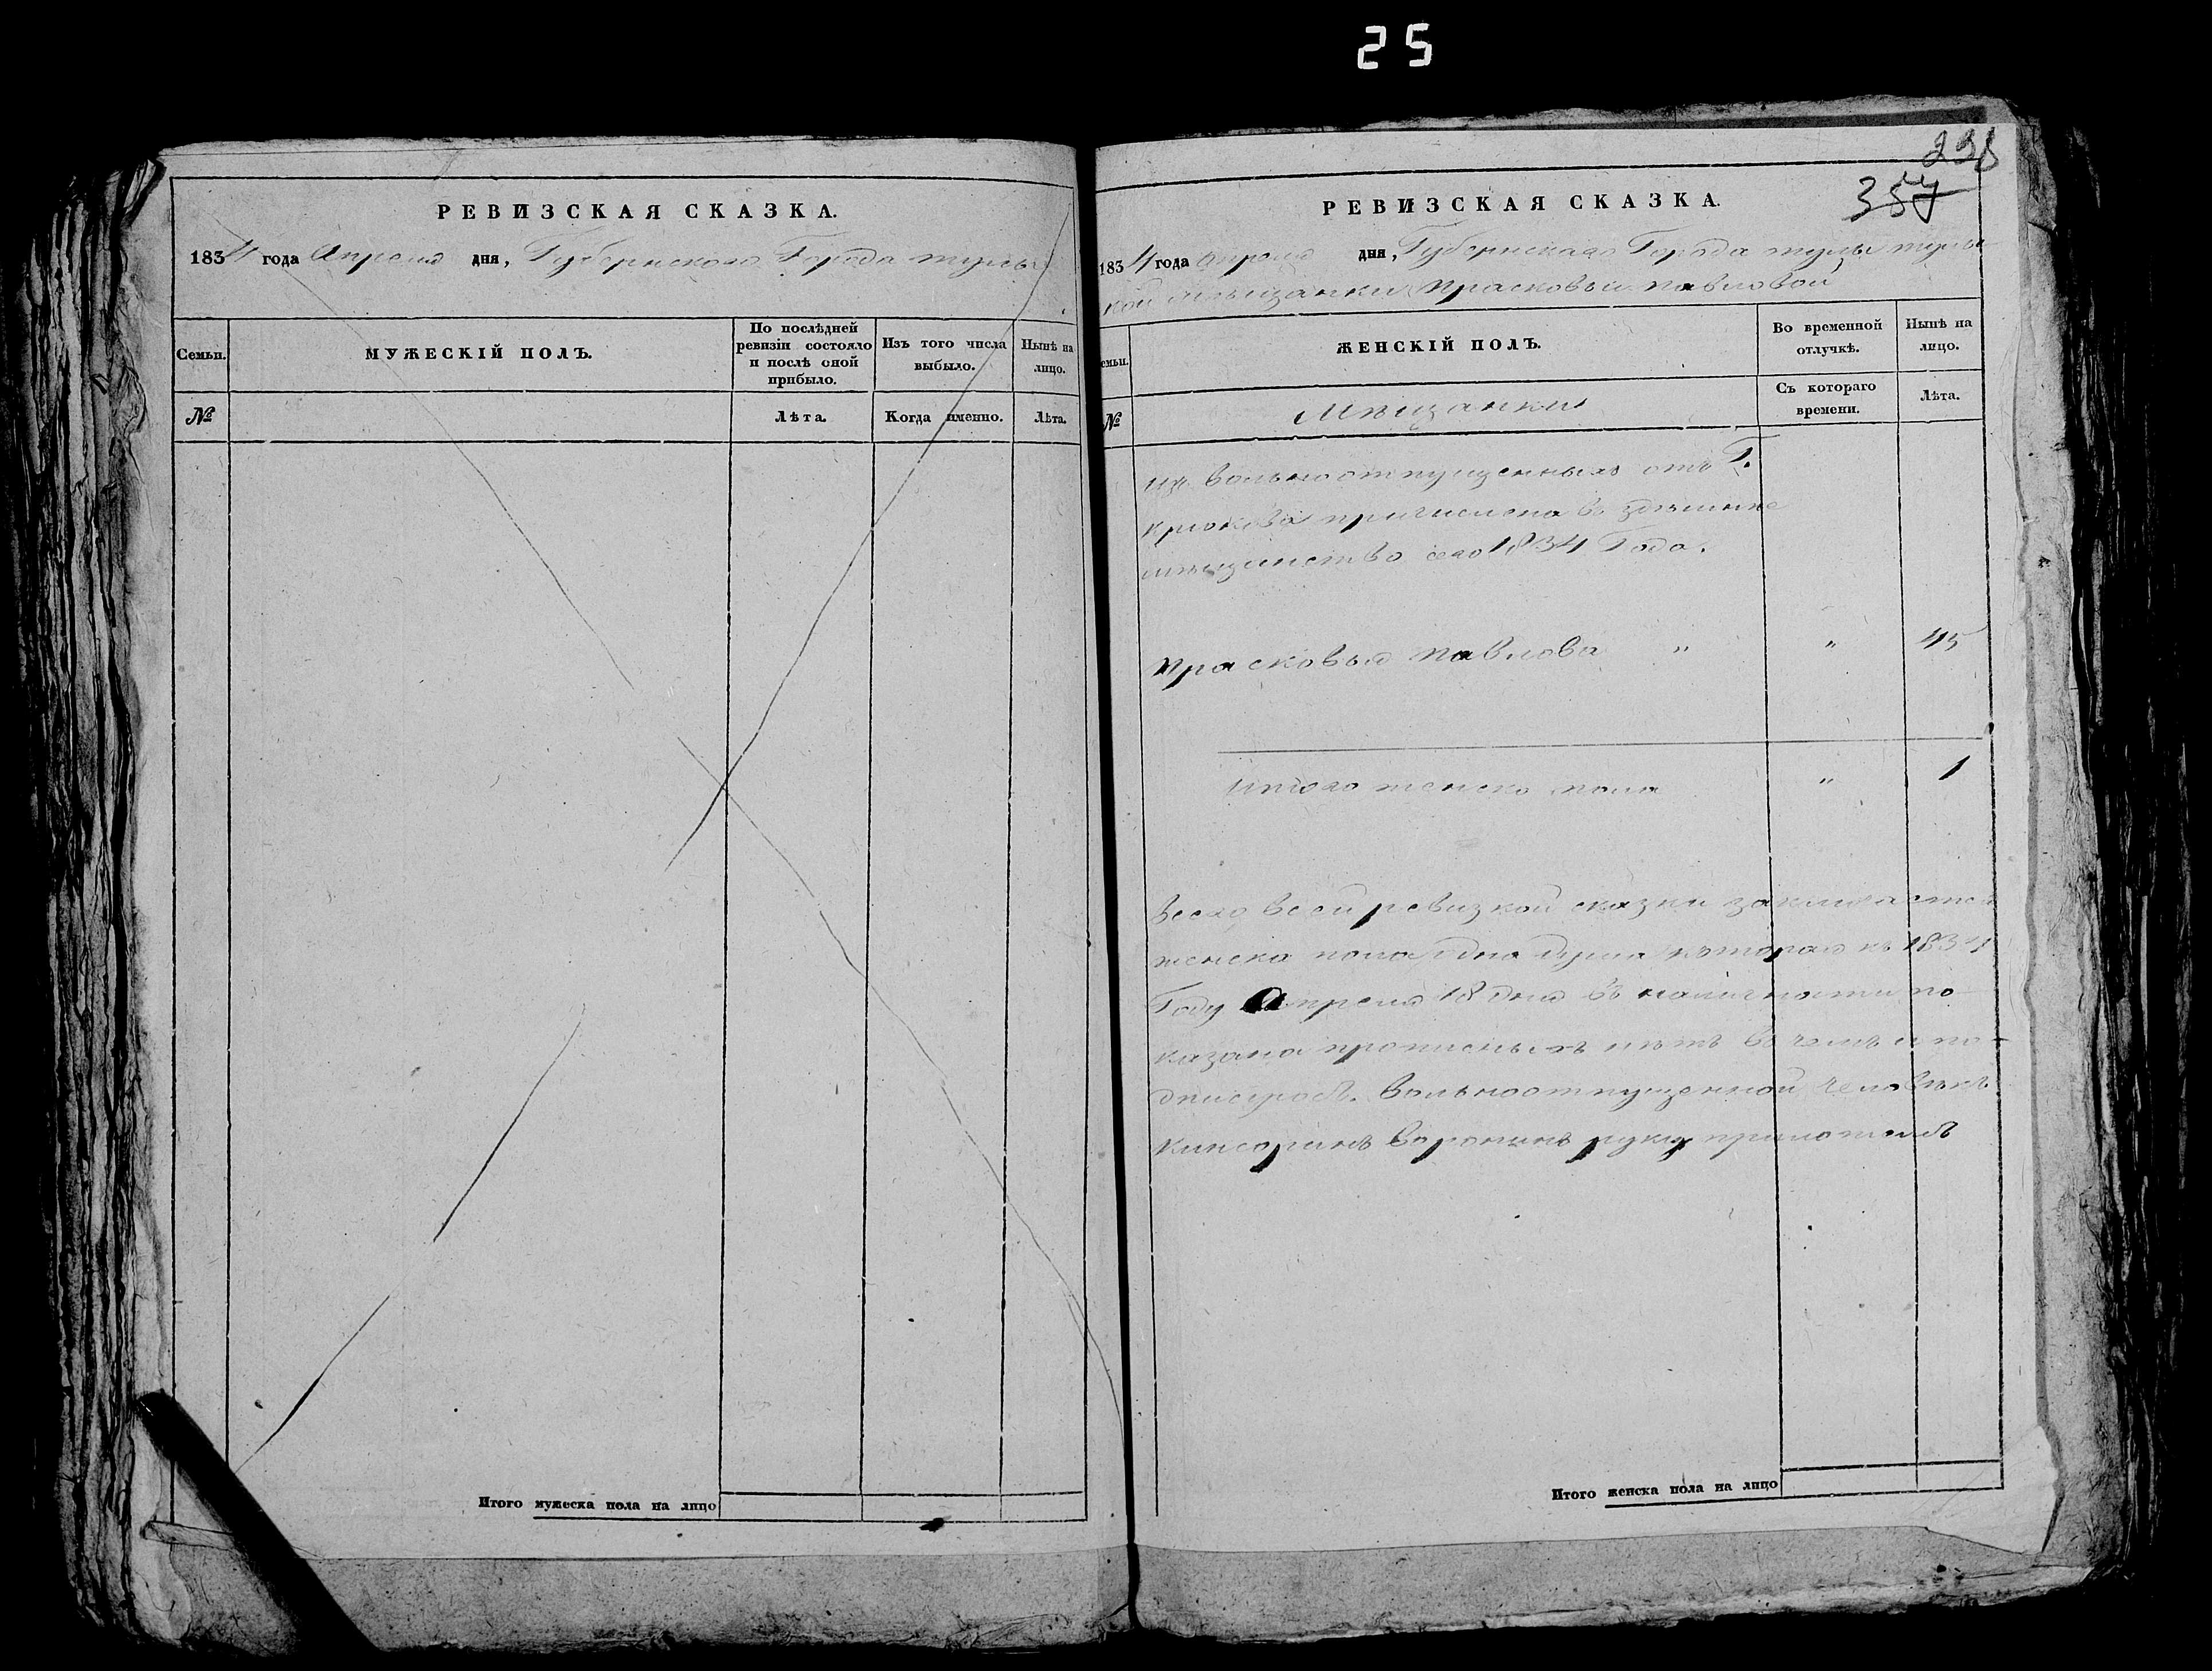 25
РЕВИЗСКАЯ СКАЗКА.
1834 года Апреля дня, Губернского Города тулы
Семьи. МУЖЕСКІЙ ПОЛЪ. По послѣдней ревизіи состояло и послѣ оной прибыло. Изъ того числа выбыло. Нынѣ на лицо.
№ Лѣта. Когда именно. Лѣта.
Итого мужеска пола на лицо
298
357
РЕВИЗСКАЯ СКАЗКА.
1834 года апреля дня, Губернскаго Города тулы тулс
кой мѣщанки Прасковьи павловой
семьи. ЖЕНСКІЙ ПОЛЪ. Во временной отлучкѣ. Нынѣ на лицо.
№ Мѣщанки Съ котораго времени. Лѣта.
изъ вольноотпущенныхъ отъ Г.
крюкова причислена в здешние
мещинство сего 1834 Года.
Прасковья павлова " " 45
Итого женско пола " 1
Всего всей ревизкой сказки заключается
женска пола одна душа которая къ 1834
Году Апреля 18 дня въ наличности по
казана прописныхъ нѣтъ в чемъ и по-
дписуюсь. вольноотпущенной человѣкъ
воронинъ руку приложилъ
Итого женска пола на лицо